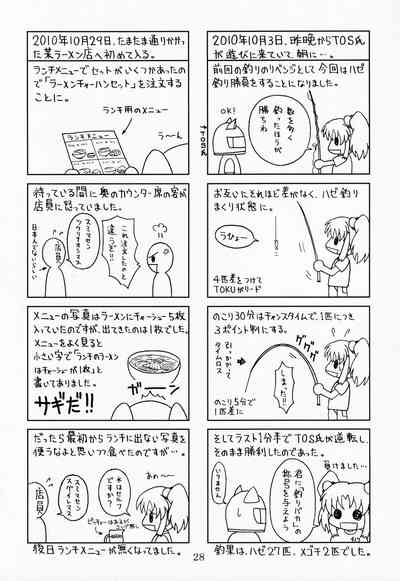 2010年10月3日、昨晩からTOS氏
が遊びに来ていて朝に…。
前回の釣りのリベンジとして今回はハゼ
釣り勝負をすることになりました。
OK!
数を多く
釣ったほうが
勝ちね
←TOS氏
お互いそれほど差がなく、ハゼ釣り
まくり状態に。
うひょー
4匹差をつけて
TOKUがリード
のこり30分はチャンスタイムで、1匹につき
3ポイント制にする。
引っかかって
タイムロス
グググ
しまった!!
のこり5分で
1匹差に
そしてラスト1分半でTOS氏が逆転し、
そのまま勝利したのであった。
負けました…
君に「釣りバカ」の
称号を与えよう
いりません
釣果は、ハゼ27匹、メゴチ2匹でした。
2010年10月29日、たまたま通りかかっ
た某ラーメン店へ初めて入る。
ランチメニューでセットがいくつかあったの
で「ラーメンチャーハンセット」を注文する
ことに。
ランチ用のメニュー
ランチメニュー
う〜ん
待っている間に奥のカウンター席の客が
店員に怒っていました。
これ注文したのと
違うぞ!!
スミマセン
ツクリナオシマス
店員
日本人でないらしい
メニューの写真はラーメンにチャーシュー5枚
入っていたのですが、出てきたのは1枚でした。
メニューをよく見ると
小さい字で「ランチのラーメン
はチャーシューが1枚」と
書いてありました。
ガーン
サギだ!!
だったら最初からランチに出ない写真を
使うなよと思いつつ食べたのですが…。
あの〜
水はセルフ
ですか?
スミマセン
スグイレマス
店員
後日ランチメニューが無くなってました。
28